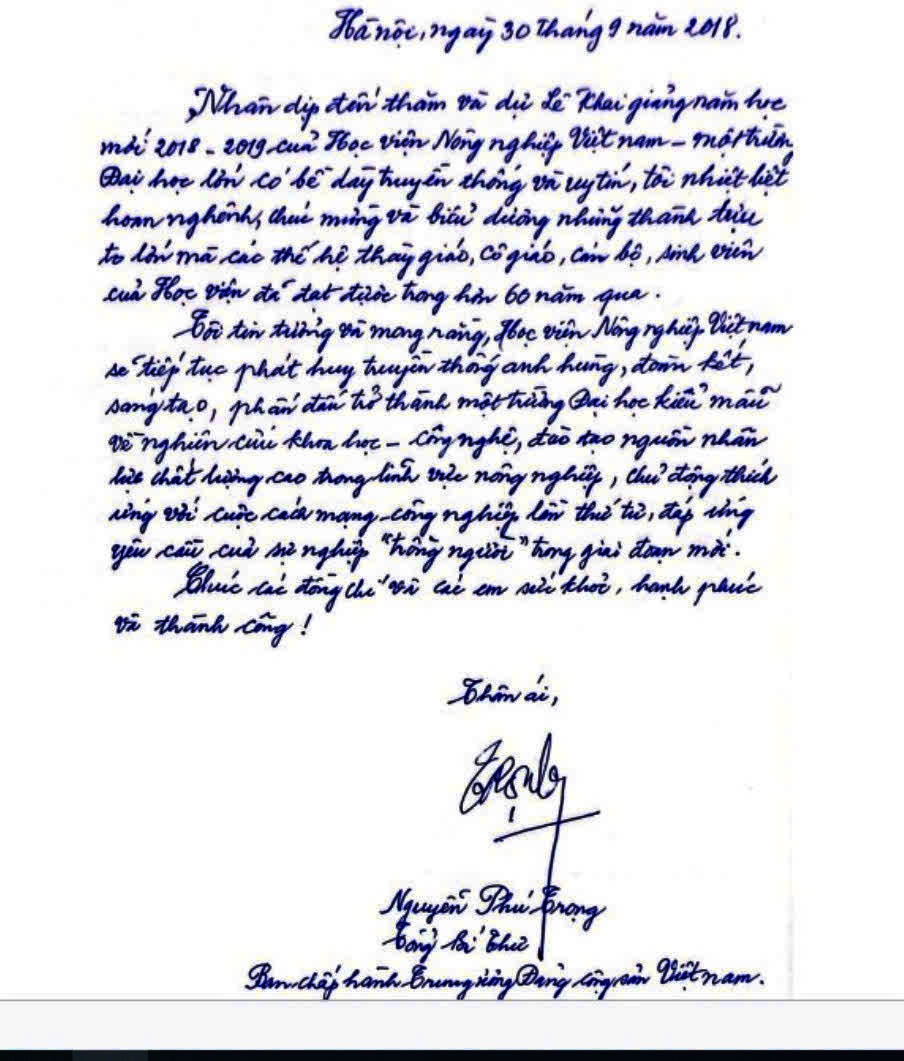 Hà nội, ngày 30 tháng 9 năm 2018.
Nhân dịp đến thăm và dự Lễ Khai giảng năm học
mới 2018 - 2019 của Học viện Nông nghiệp Việt nam - một trường
Đại học lớn có bề dày truyền thống và uy tín, tôi nhiệt liệt
hoan nghênh, chúc mừng và biểu dương những thành tựu
to lớn mà các thế hệ thầy giáo, cô giáo, cán bộ, sinh viên
của Học viện đã đạt được trong hơn 60 năm qua.
Tôi tin tưởng và mong rằng, Học viện Nông nghiệp Việt nam
sẽ tiếp tục phát huy truyền thống anh hùng, đoàn kết,
sáng tạo, phấn đấu trở thành một trường Đại học kiểu mẫu
về nghiên cứu khoa học - công nghệ, đào tạo nguồn nhân
lực chất lượng cao trong lĩnh vực nông nghiệp, chủ động thích
ứng với cuộc cách mạng công nghiệp lần thứ tư, đáp ứng
yêu cầu của sự nghiệp "trồng người" trong giai đoạn mới.
Chúc các đồng chí và các em sức khoẻ, hạnh phúc
và thành công!
Thân ái,
Trọng
Nguyễn Phú Trọng
Tổng Bí Thư
Ban chấp hành Trung ương Đảng cộng sản Việt nam.